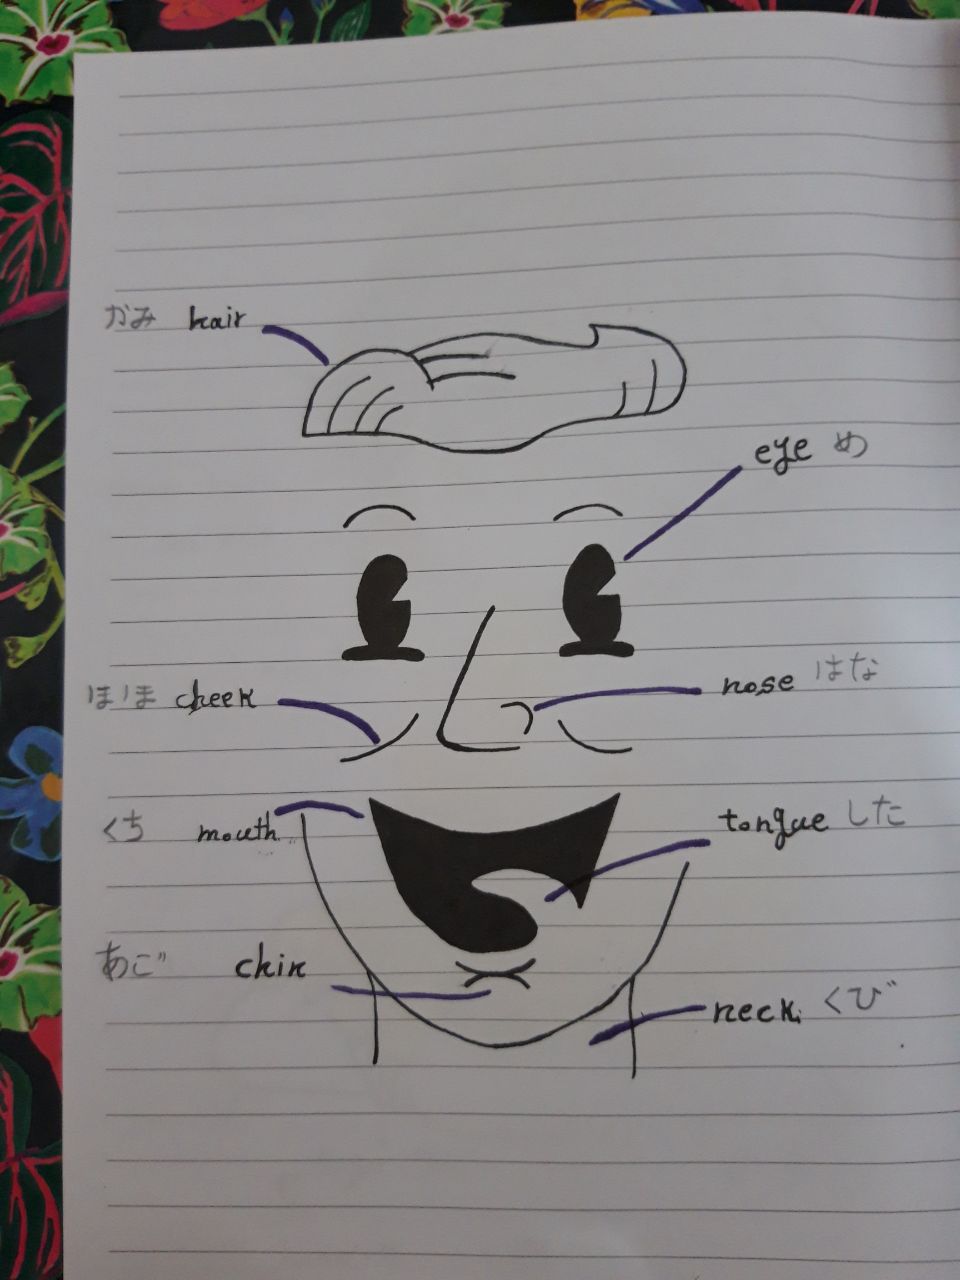 かみ hair
eye め
ほほ cheek
nose はな
くち mouth
tongue した
あご chin
neck くび